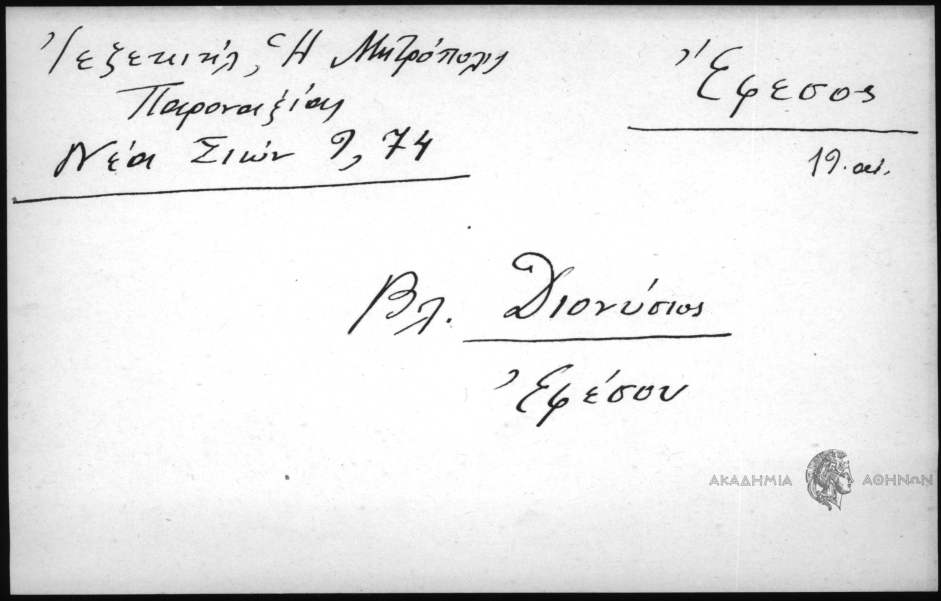 Ἰεζεκιήλ, Ἡ Μητρόπολις
Παροναξίας
Νέα Σιών 9, 74
Ἔφεσος
19. αἰ.
Βλ. Διονύσιος
Ἐφέσου
ΑΚΑΔΗΜΙΑ ΑΘΗΝΩΝ